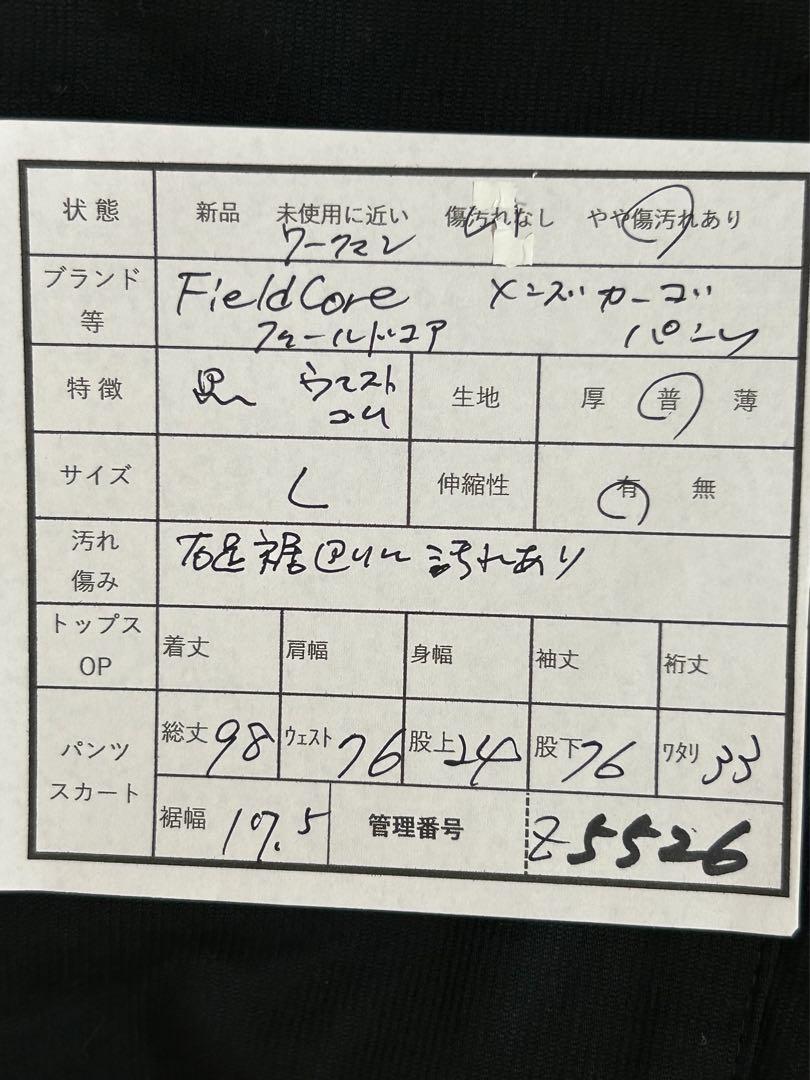 状態 新品 未使用に近い 傷汚れなし やや傷汚れあり
ワークマン
ブランド等 FieldCore メンズカーゴ
フィールドコア パンツ
特徴 黒 ウエスト 生地 厚 普 薄
ゴム
サイズ L 伸縮性 有 無
汚れ傷み 右足裾辺りに汚れあり
トップス OP 着丈 肩幅 身幅 袖丈 裄丈
パンツ スカート 総丈 98 ウェスト 76 股上 24 股下 76 ワタリ 33
裾幅 17.5 管理番号 Z5526